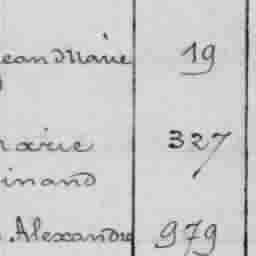 Jean Marie 19
Marie 327
inand
Alexandre 979